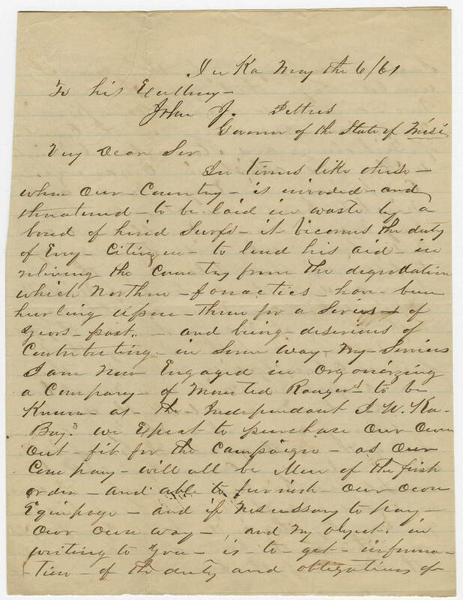 Iu Ka May the 6/61
To his Excellency —
John J. Pettus
Governor of the State of Missi
Very Dear Sir
In times like these —
when Our Country — is invaded — and
threatened — to be laid in waste by — a
band of hired Serfs — it becomes the duty
of Every — Citizen — to lend his aid — in
relieving the Country from the degradation
which Northern — fanactics have been
hurling upon — them for a Series of
years — past — and being — desirous of
Contributing — in Some way — My Services
I am Now Engaged in Organizing
a Company — of Mounted Rangers to be
Known — as — the Independant I. U. Ka
Boys. we Expect to purchase Our Own
Out — fit for the Campaign — as Our
Company — will all be Men of the first
order — and able to furnish Our Own
Equipage — and if necessary to pay —
Our Own way — , and My object in
writing to you — is — to — get — informa-
tion — of the duty and obligations of